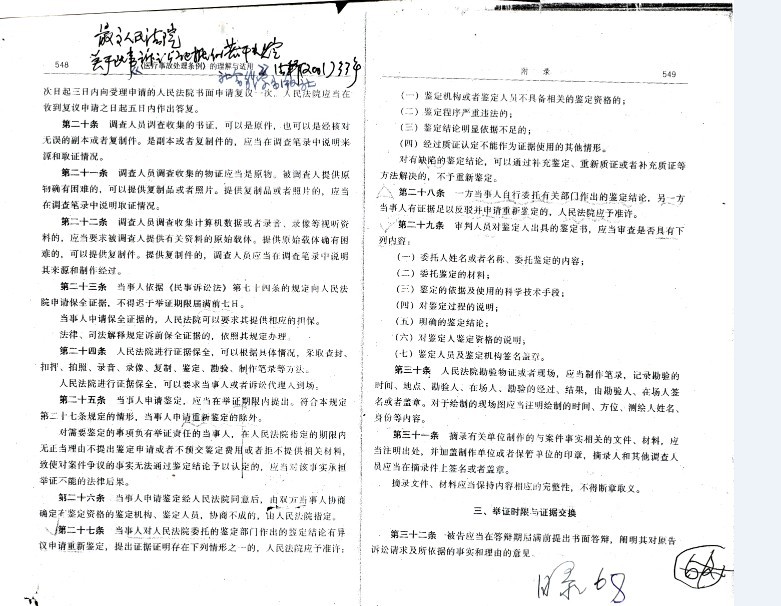 最高人民法院
关于民事诉讼证据的若干规定
548 《医疗事故处理条例》的理解与适用
次日起三日内向受理申请的人民法院书面申请复议一次。人民法院应当在
收到复议申请之日起五日内作出答复。
第二十条 调查人员调查收集的书证，可以是原件，也可以是经核对
无误的副本或者复制件。是副本或者复制件的，应当在调查笔录中说明来
源和取证情况。
第二十一条 调查人员调查收集的物证应当是原物。被调查人提供原
物确有困难的，可以提供复制品或者照片。提供复制品或者照片的，应当
在调查笔录中说明取证情况。
第二十二条 调查人员调查收集计算机数据或者录音、录像等视听资
料的，应当要求被调查人提供有关资料的原始载体。提供原始载体确有困
难的，可以提供复制件。提供复制件的，调查人员应当在调查笔录中说明
其来源和制作经过。
第二十三条 当事人依据《民事诉讼法》第七十四条的规定向人民法
院申请保全证据，不得迟于举证期限届满前七日。
当事人申请保全证据的，人民法院可以要求其提供相应的担保。
法律、司法解释规定诉前保全证据的，依照其规定办理。
第二十四条 人民法院进行证据保全，可以根据具体情况，采取查封、
扣押、拍照、录音、录像、复制、鉴定、勘验、制作笔录等方法。
人民法院进行证据保全，可以要求当事人或者诉讼代理人到场。
第二十五条 当事人申请鉴定，应当在举证期限内提出。符合本规定
第二十七条规定的情形，当事人申请重新鉴定的除外。
对需要鉴定的事项负有举证责任的当事人，在人民法院指定的期限内
无正当理由不提出鉴定申请或者不预交鉴定费用或者拒不提供相关材料，
致使对案件争议的事实无法通过鉴定结论予以认定的，应当对该事实承担
举证不能的法律后果。
第二十六条 当事人申请鉴定经人民法院同意后，由双方当事人协商
确定有鉴定资格的鉴定机构、鉴定人员，协商不成的，由人民法院指定。
第二十七条 当事人对人民法院委托的鉴定部门作出的鉴定结论有异
议申请重新鉴定，提出证据证明存在下列情形之一的，人民法院应予准许：
附 录 549
（一）鉴定机构或者鉴定人员不具备相关的鉴定资格的；
（二）鉴定程序严重违法的；
（三）鉴定结论明显依据不足的；
（四）经过质证认定不能作为证据使用的其他情形。
对有缺陷的鉴定结论，可以通过补充鉴定、重新质证或者补充质证等
方法解决的，不予重新鉴定。
第二十八条 一方当事人自行委托有关部门作出的鉴定结论，另一方
当事人有证据足以反驳并申请重新鉴定的，人民法院应予准许。
第二十九条 审判人员对鉴定人出具的鉴定书，应当审查是否具有下
列内容：
（一）委托人姓名或者名称、委托鉴定的内容；
（二）委托鉴定的材料；
（三）鉴定的依据及使用的科学技术手段；
（四）对鉴定过程的说明；
（五）明确的鉴定结论；
（六）对鉴定人鉴定资格的说明；
（七）鉴定人员及鉴定机构签名盖章。
第三十条 人民法院勘验物证或者现场，应当制作笔录，记录勘验的
时间、地点、勘验人、在场人、勘验的经过、结果，由勘验人、在场人签
名或者盖章。对于绘制的现场图应当注明绘制的时间、方位、测绘人姓名、
身份等内容。
第三十一条 摘录有关单位制作的与案件事实相关的文件、材料，应
当注明出处，并加盖制作单位或者保管单位的印章，摘录人和其他调查人
员应当在摘录件上签名或者盖章。
摘录文件、材料应当保持内容相应的完整性，不得断章取义。
三、举证时限与证据交换
第三十二条 被告应当在答辩期届满前提出书面答辩，阐明其对原告
诉讼请求及所依据的事实和理由的意见。
68